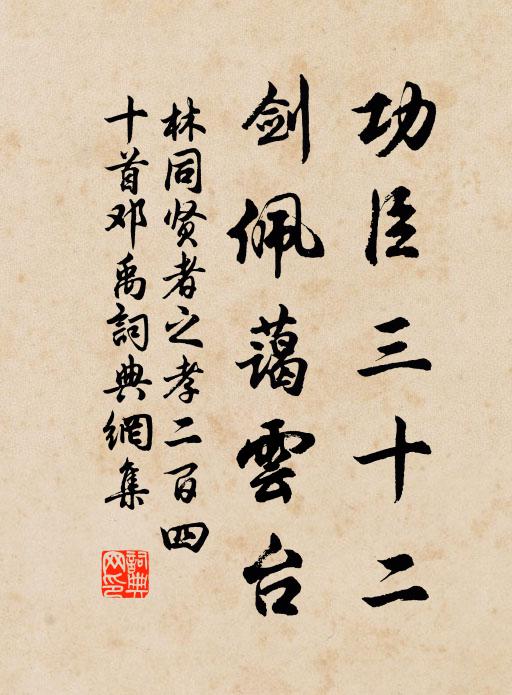 功臣三十二
剑佩蔼雲台
林同贤者之孝二百四
十首邓禹詞典網集
詞典
网印